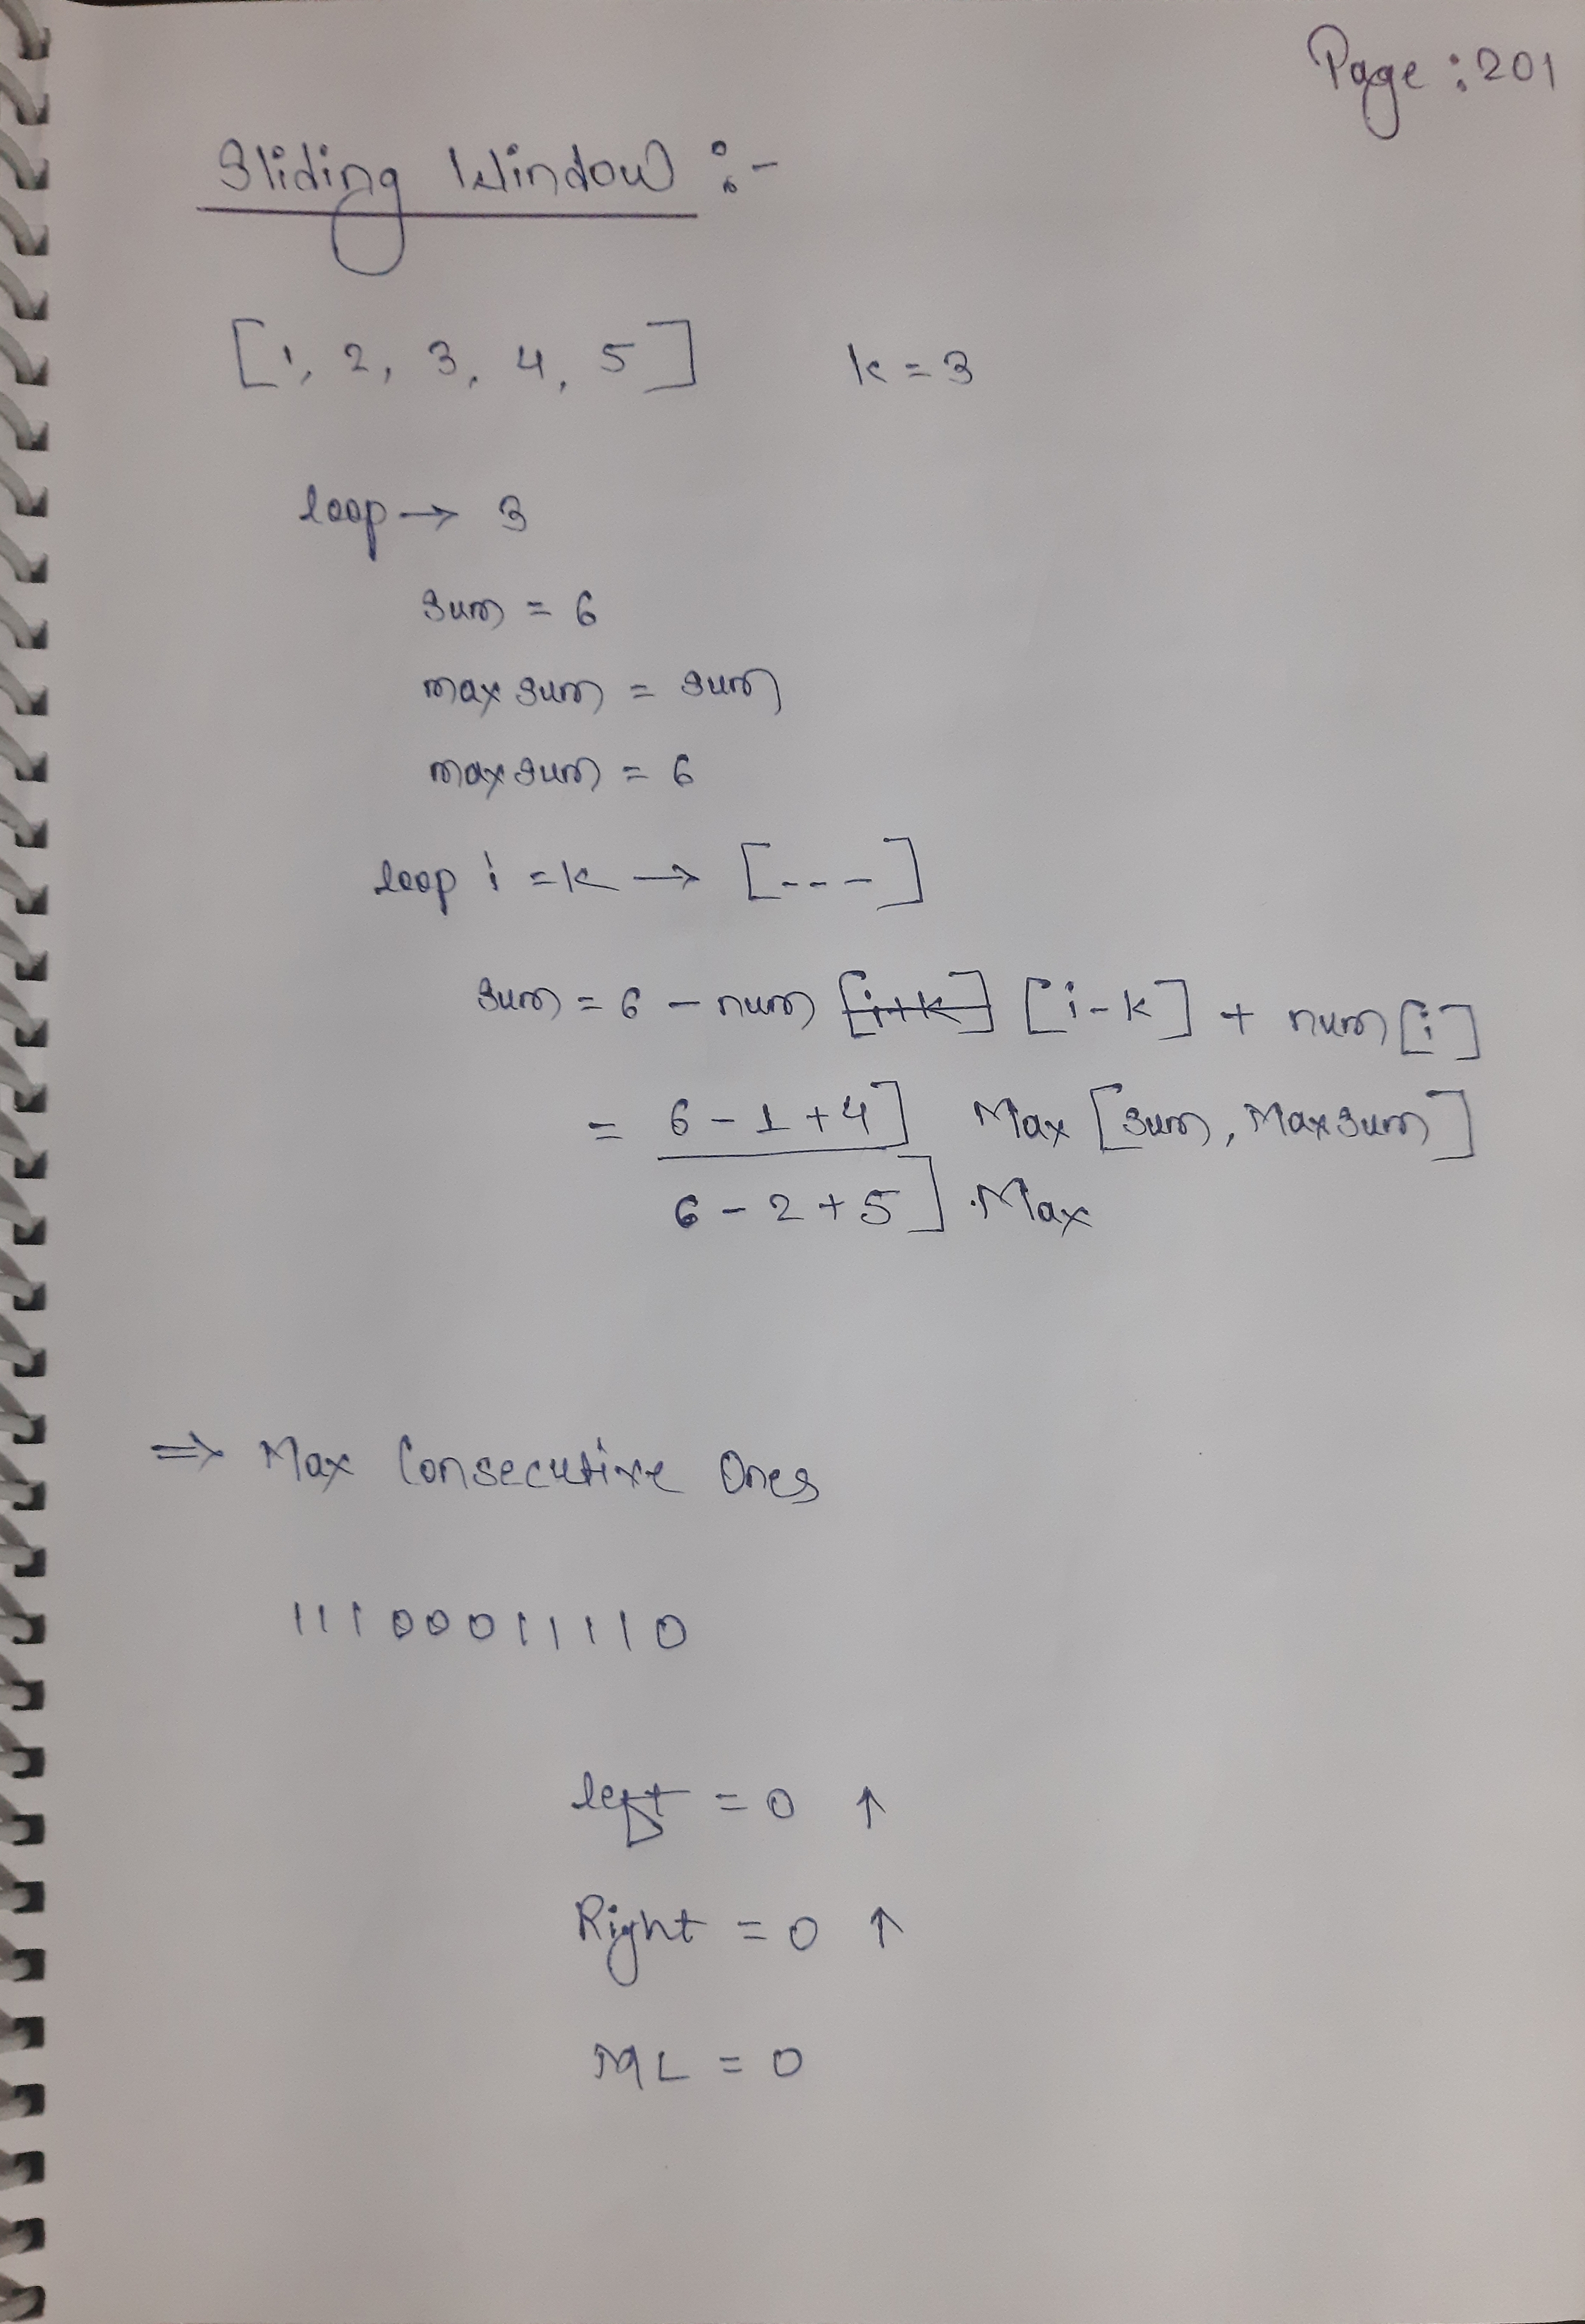 Page : 201
Sliding Window :-
[1, 2, 3, 4, 5] k = 3
loop → 3
sum = 6
max sum = sum
max sum = 6
loop i = k → [---]
sum = 6 - num [i+k] [i-k] + num [i]
= 6 - 1 + 4] Max [sum, Maxsum]
6 - 2 + 5] . Max
⇒ Max Consecutive Ones
11100011110
left = 0 ↑
Right = 0 ↑
ML = 0